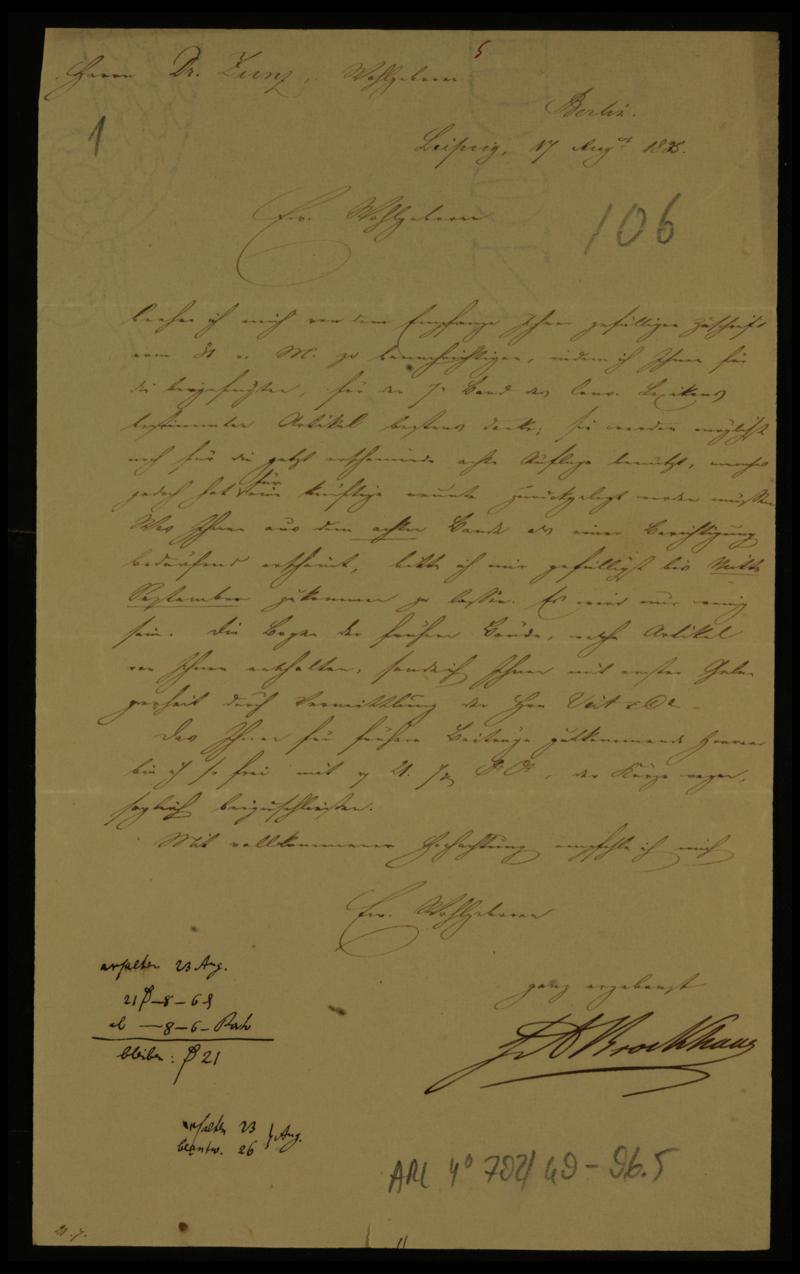 Herrn Dr. Zunz, Wohlgeboren
5
Berlin.
1
Leipzig, 17 Augst 1835.
106
Ew. Wohlgeboren
beehre ich mich von dem Empfange Ihrer gefälligen Zuschrift
vom 31 v. M. zu benachrichtigen, indem ich Ihnen für
die beigefügten, für den 7n Band des Conv. Lexikons
bestimmten Artikel bestens danke; sie werden möglichst
noch für die jetzt erscheinende achte Auflage benutzt, manches
jedoch hat für eine künftige neunte zurückgelegt werden müssen
Was Ihnen aus dem achten Bande als einer Berichtigung
bedürfend erscheint, bitte ich mir gefälligst bis Mitte
September zukommen zu lassen. Es wird nur wenig
sein. Die Bogen der frühern Bände, welche Artikel
von Ihnen enthalten, sende ich Ihnen mit erster Gele
genheit durch Vermittlung der Hrn Veit & Co.
Das Ihnen für frühere Beiträge zukommende Honorar
bin ich so frei mit 21. der Kürze wegen,
sogleich beizuschließen.
Mit vollkommener Hochachtung empfehle ich mich
Ew. Wohlgeboren
ganz ergebenst
F A Brockhaus
erhalten 23 Aug.
21 – 8 – 6
ab – 8 – 6 – Porto
bleiben: 21
erhalten 23
beantw. 26 } Aug.
ARC 4° 792/ G9 - 96.5